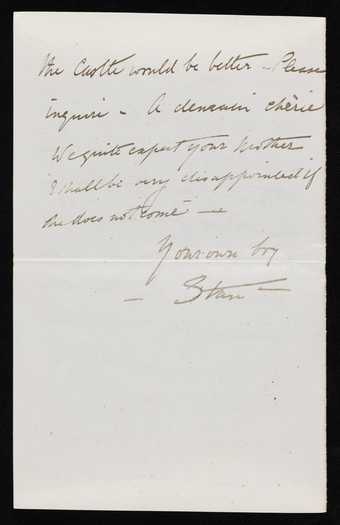 the Castle would be better – Please
inquire – A demain chérie
We quite expect your Mother
I shall be very disappointed if
she does not come –
Your own boy
– Stan –